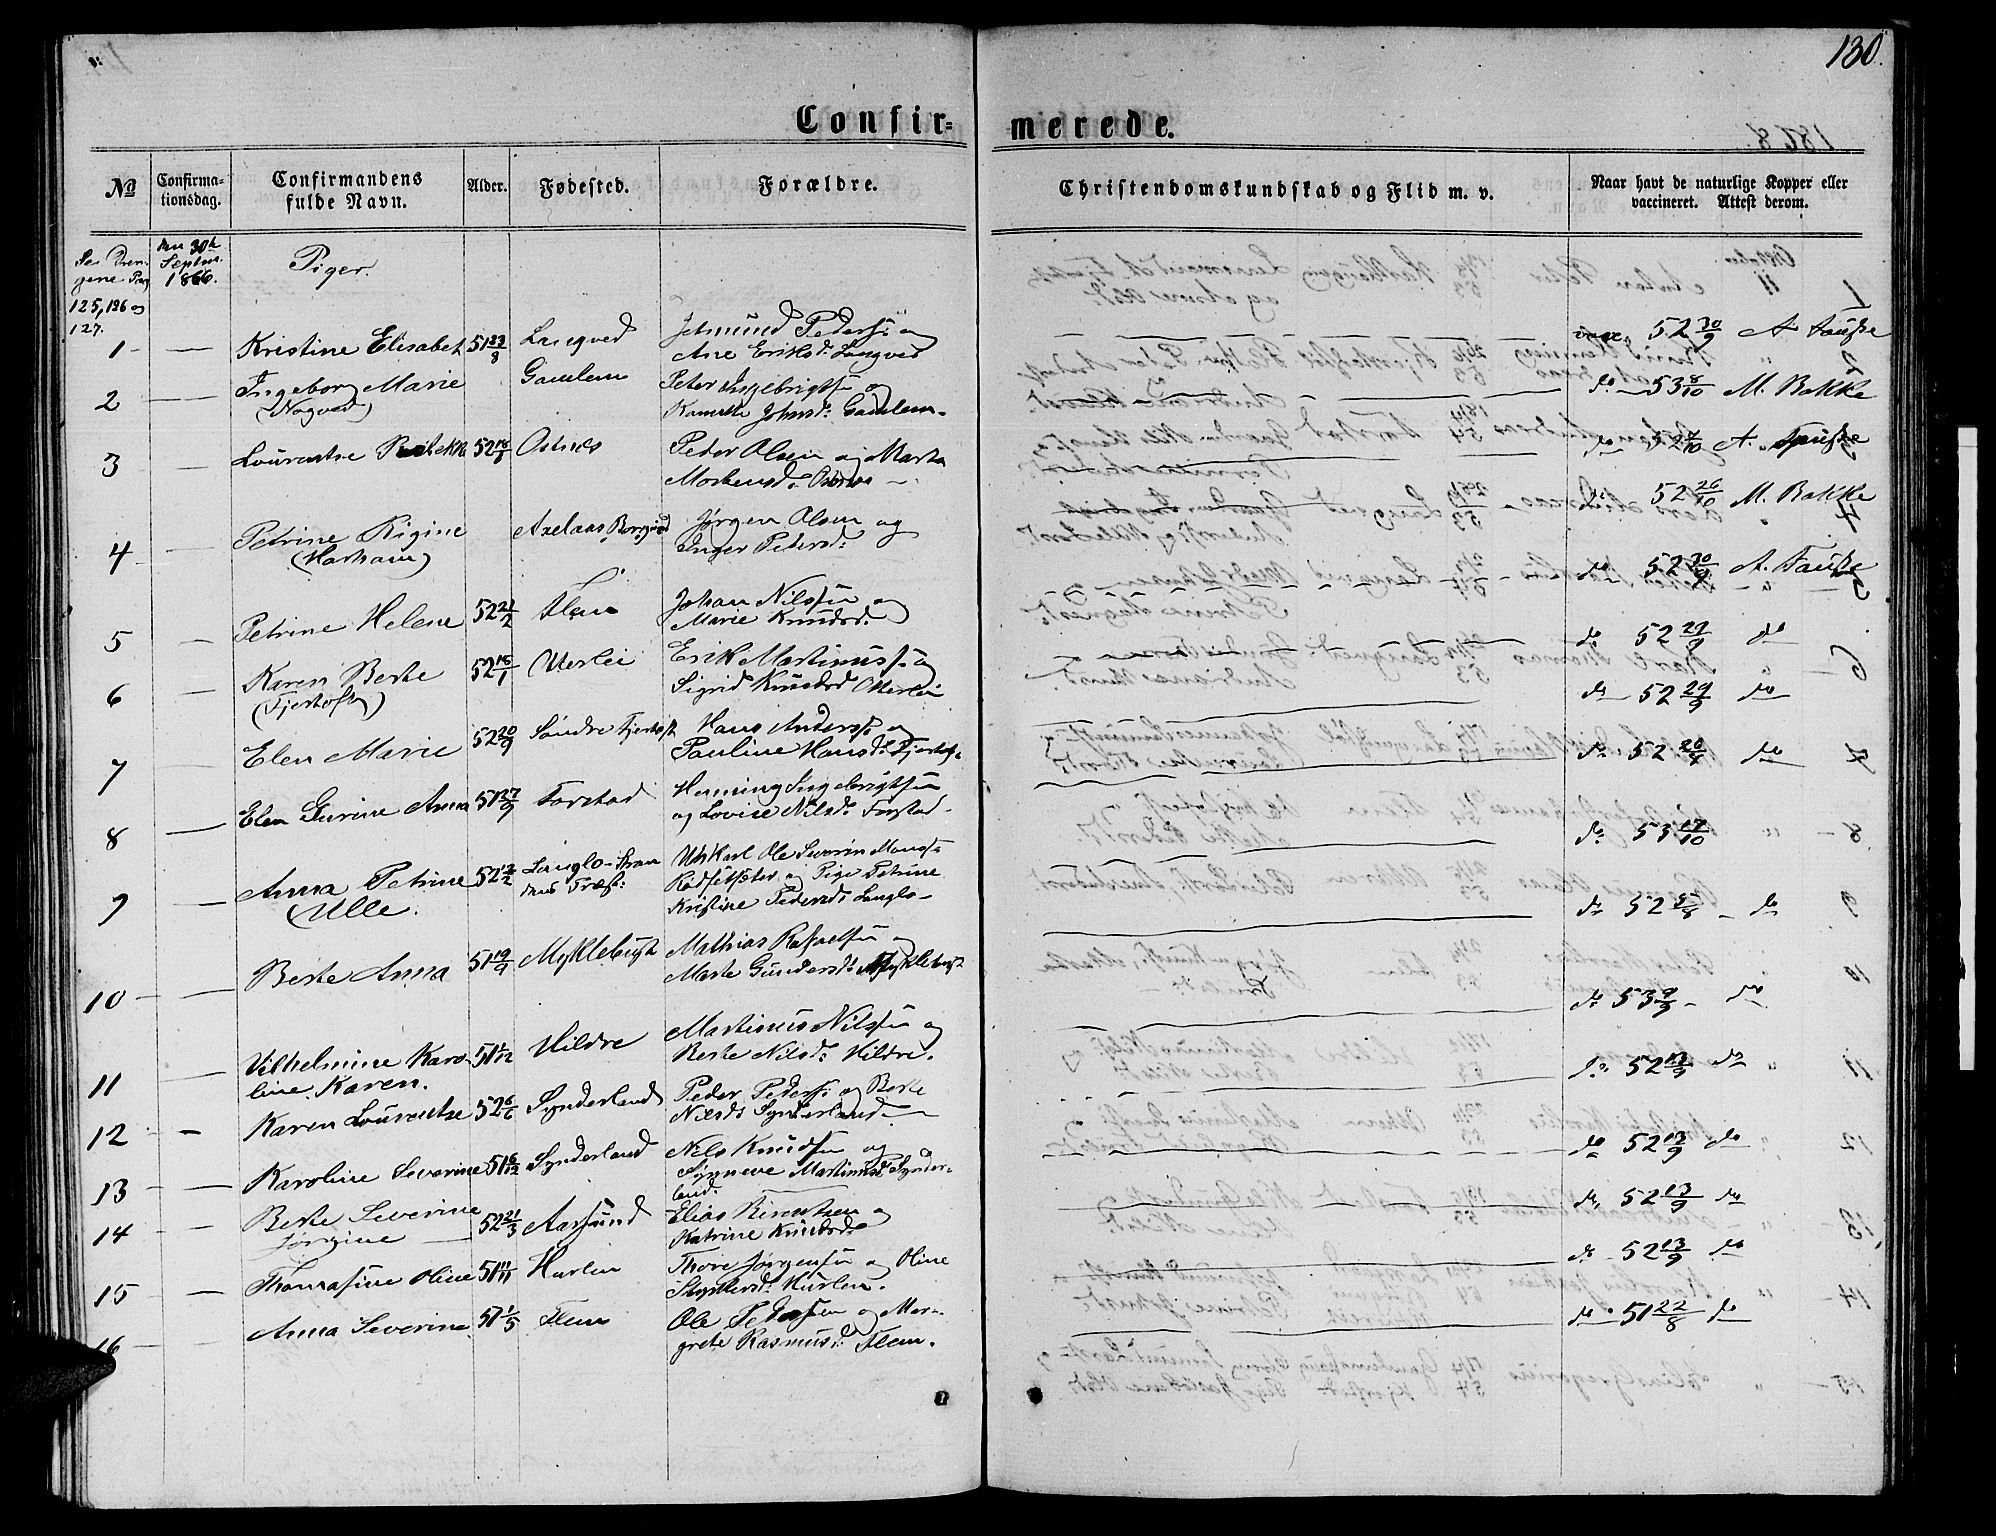 130.
Confir=
merede.
No
Confirma-
tionsdag.
Confirmandens
fulde Navn.
Alder.
Fødested.
Forældre.
Christendomskundskab og Flid m. v.
Naar havt de naturlige Kopper eller
vaccineret. Attest derom.
Se Dren-
gene Pag
125, 126 og
127.
den 30te
Septbr.
1866.
Piger.
1 Kristine Elisabet 51 23/8 Langved Jetmund Peders: og
Ane Eriksd: Langved
vacc. 52 30/9 A Fauske
2 Ingeborg Marie Gamlem Peter Ingebrigtsen og
(Nogved) Johnsd: Gamlem
do 53 8/10 M. Bakke
3 Lourentse 52 Peder Olsen og Marta
Mortensd:
do 52 /10 A. Fauske
4 Petrine Rigine Axelaas Borgund Jørgen Olsen og
(Harham) Inger Petersd:
do 52 26/10 M. Bakke
5 Petrine Helene 52 21/2 Flem Johan Nilssen og
Marie Knudsd:
do 52 30/9 A. Fauske
6 Karen Berte 52 16/1 Uterlei Erik Martinuss: og
(Fjertoft) Sigrid Knudsd: Otterlei
do 52 29/9 do
7 Elen Marie 52 20/9 Søndre Fjertoft Hans Anderss: og
Pauline Hansd: Fjertoft
do 52 29/9 do
8 Elen Gurine Anna 51 27/9 Farstad Henning Ingebrigtsen
og Lovise Nilsd: Farstad
do 52 26/8 do
9 Anna Petrine 52 12/2 Langlo-
(Ulle. Ole Severin Monss:
og Pige Petrine
Kristine Pedersd: Langlo
do 53 17/10
10 Berte Anna 51 19/9 Myklebust Mathias Rafaelsen og
Marte Gundersd: Myklebust
do 52 5/8 do
11 Vilhelmine Karo- 51 1/12 Hildre Martinus Nilssen og
line Karen. Berte Nilsd: Hildre.
do 53 9/9 do
12 Karen Lourentse 52 6/6 Synderland Peder Peders: og Berte
Nilsd: Synderland
do 52 13/9 do
13 Karoline Severine 51 6/12 Synderland Nils Knudsen og
Synneve Martinusd: Synder-
land.
do 52 13/9 do
14 Berte Severine 52 21/3 Aarsund Elias Berntsen og
Jørgine Katrine Knudsd:
do 52 13/9 do
15 Thomasine Oline 51 11/11 Hurlen Thore Jørgensen og Oline
Hurlen.
do 52 13/9 do
16 Anna Severine 51 1/5 Flem Ole Petersen og Mar-
grete Rasmusd: Flem.
do 51 22/8 do